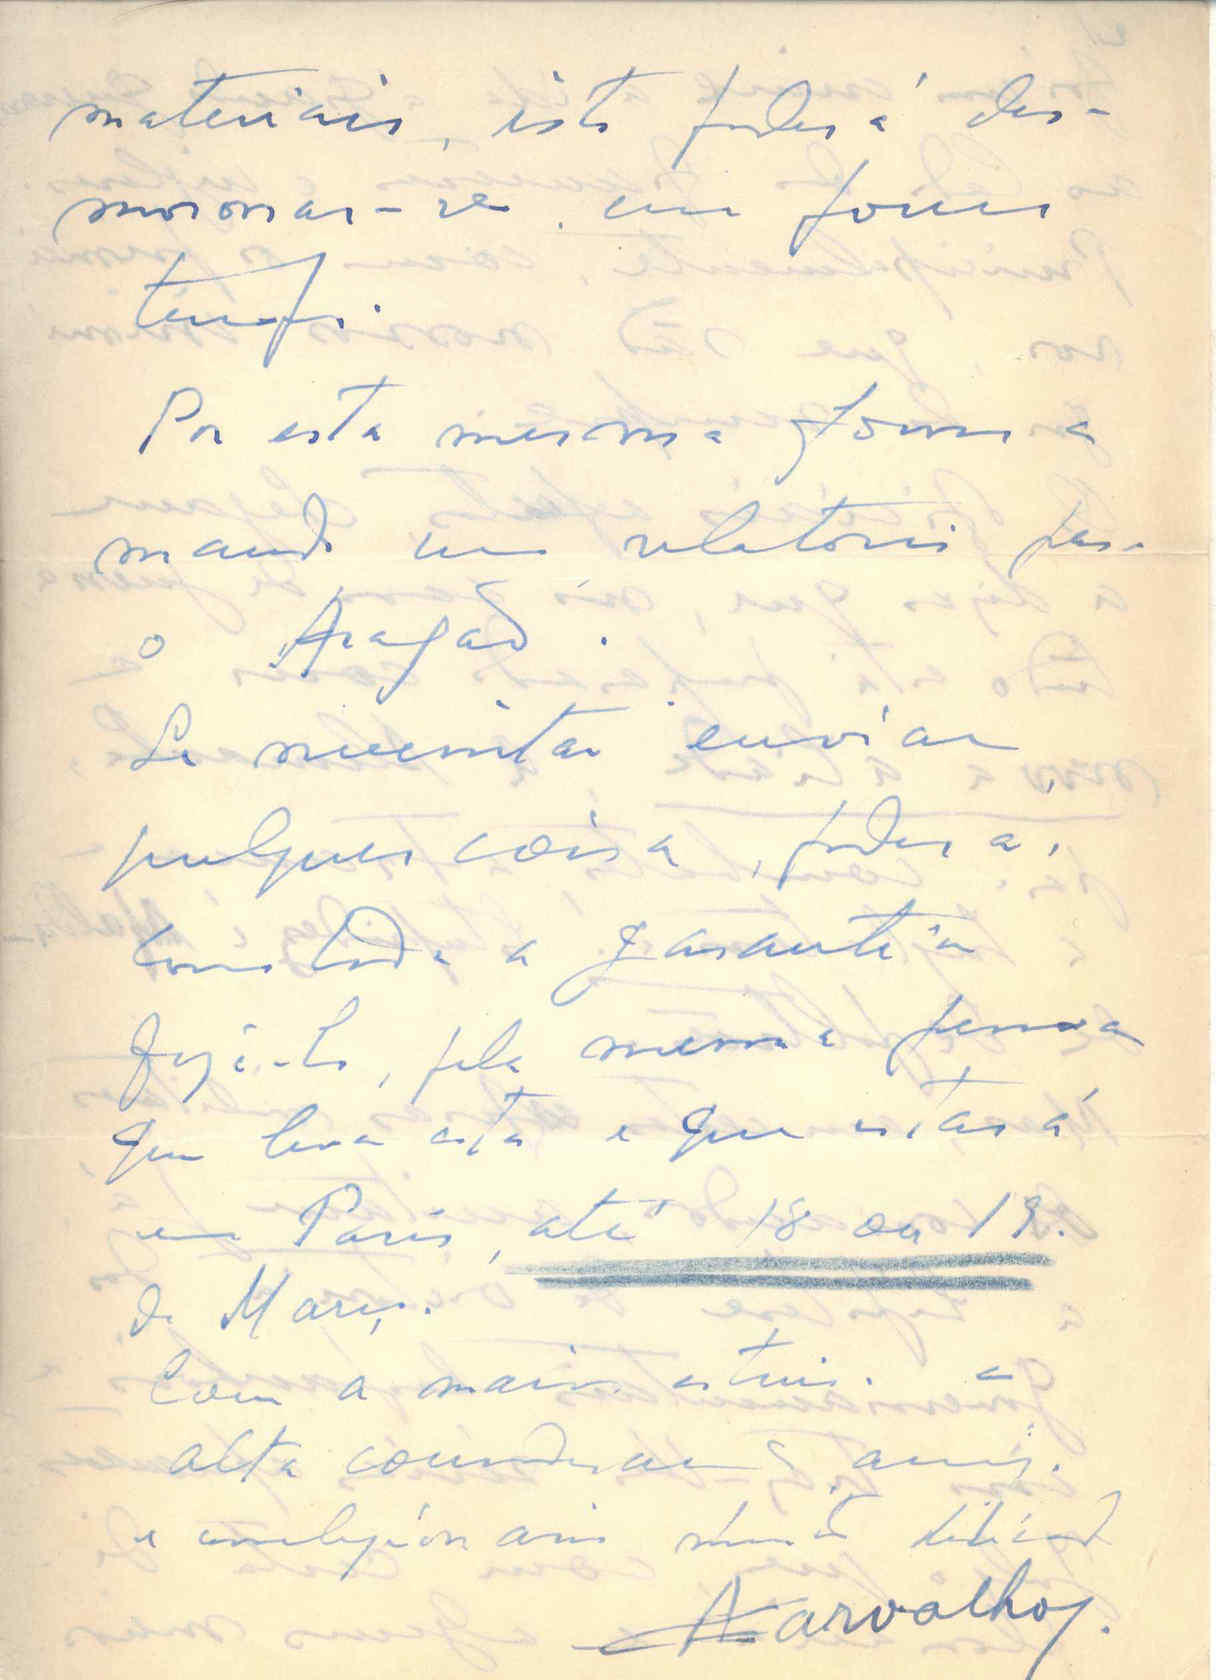 materiais, isto poderá des-
moronar-se em pouco
tempo.
Por esta mesma forma
mando um relatorio para
o Aragão.
Se necessitar enviar
qualquer coisa, poderá,
com toda a garantia
fazê-lo, pela mesma pessoa
que leva esta e que estará
em Paris, até 18 ou 19.
de Março.
Com a maior estima e
alta consideração amigo.
e correligionario muito dedicado
ACarvalho.